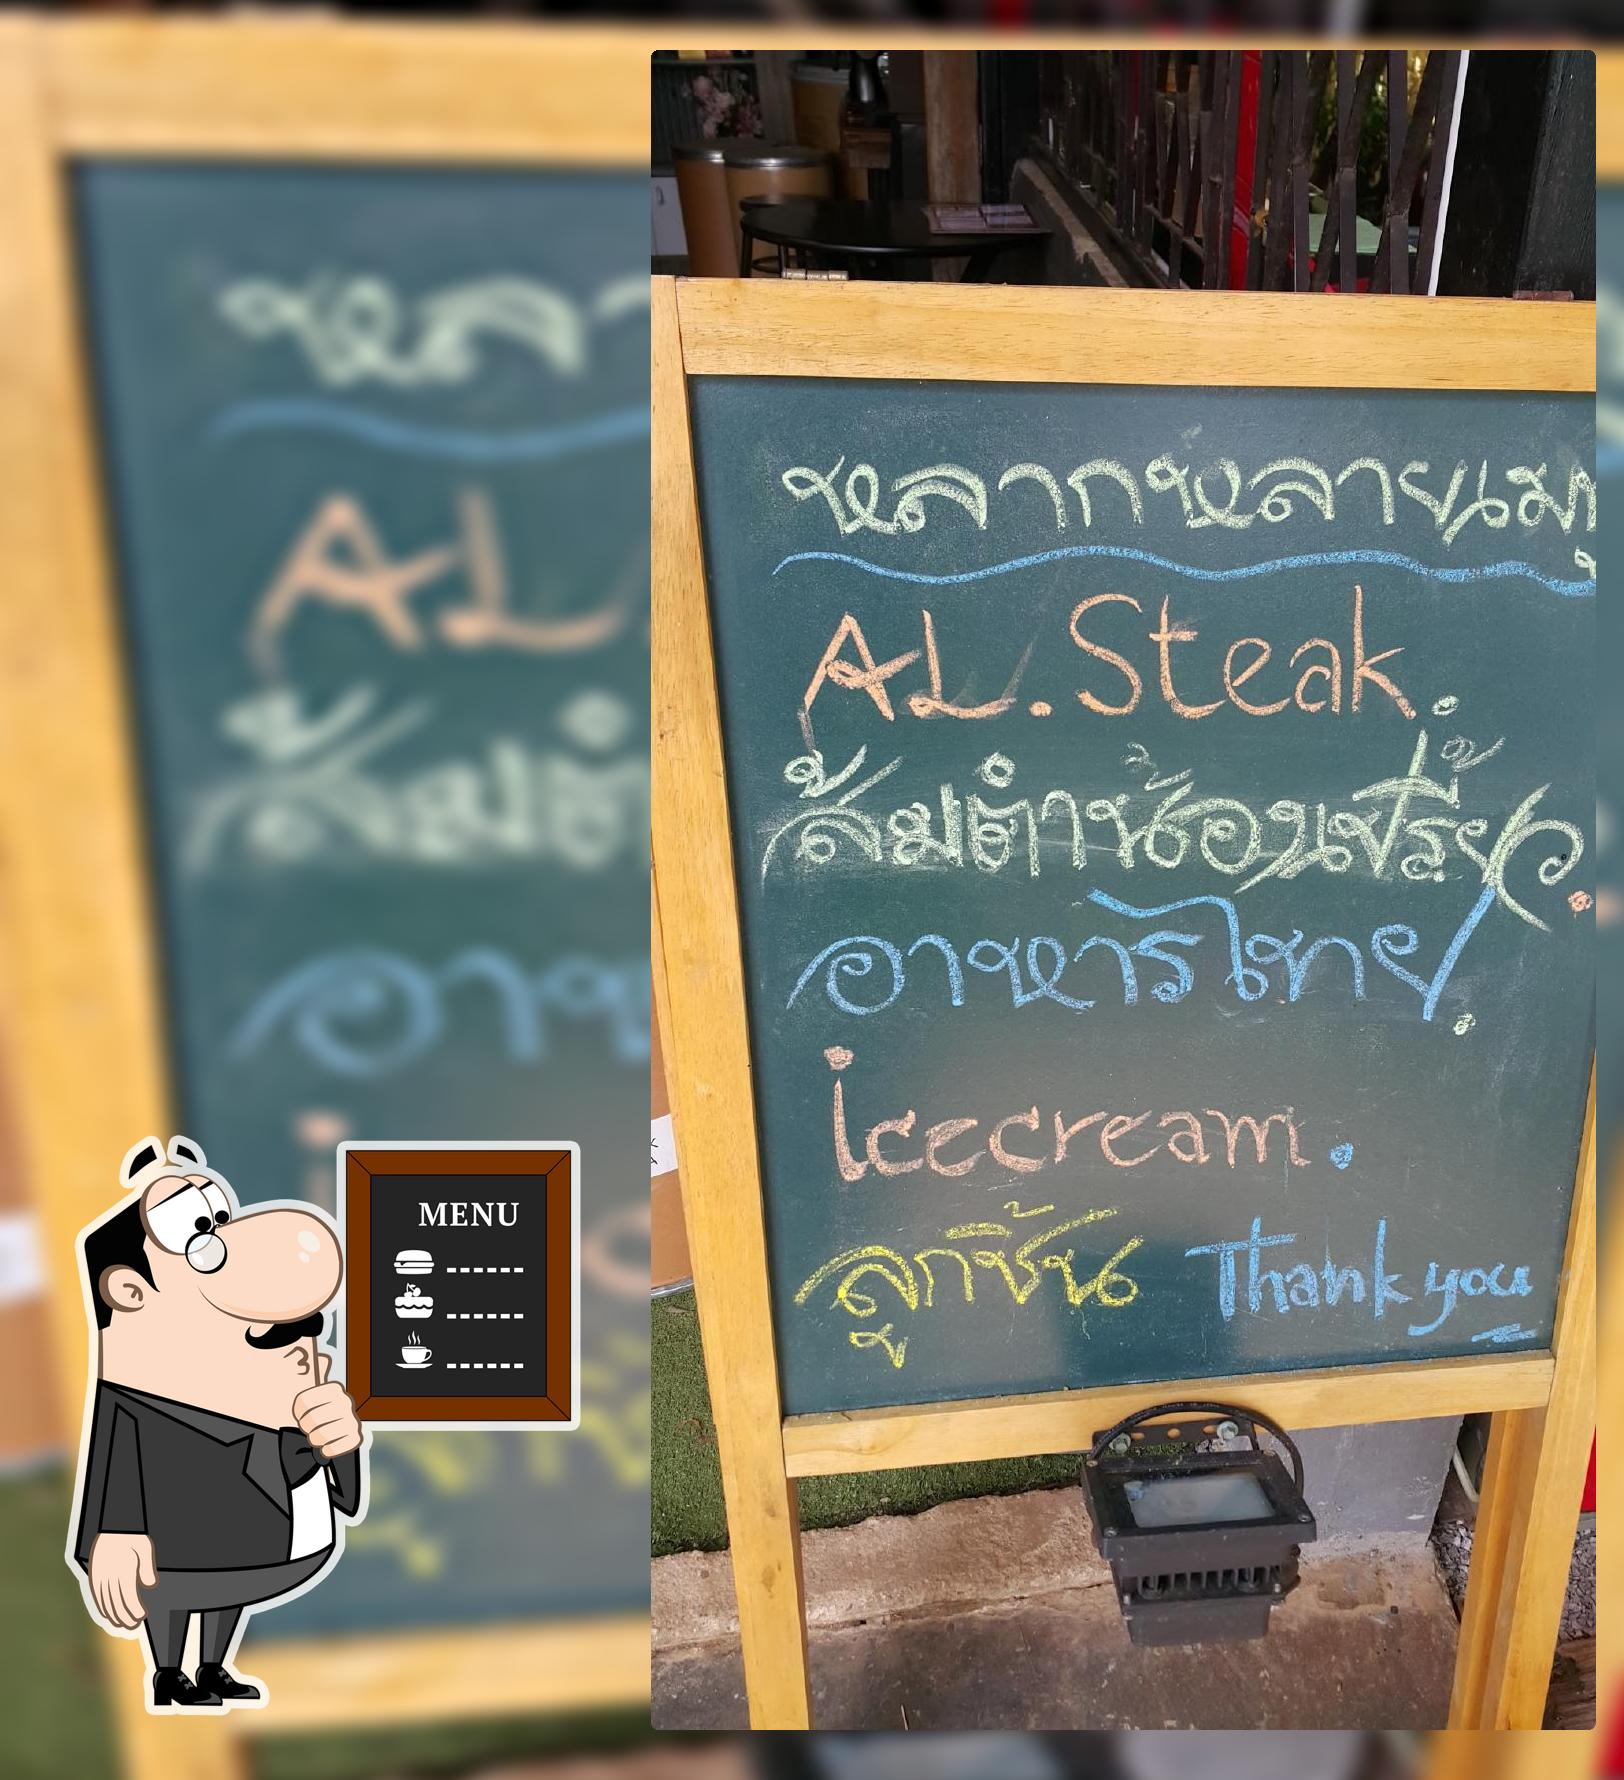 หลากหลายเมนู
AL. Steak.
ส้มตำน้องเปรี้ยว.
อาหารไทย.
icecream.
ลูกชิ้น Thank you
MENU